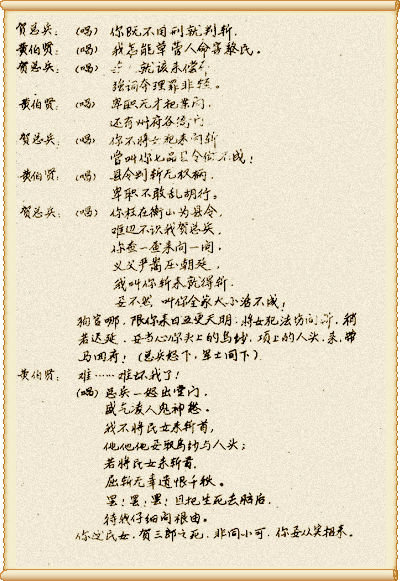 贺总兵：（唱）你既不用刑就判斩，
黄伯贤：（唱）我怎能草菅人命害黎民。
贺总兵：（唱）就该来偿
强词夺理罪非轻。
黄伯贤：（唱）卑职无才把案问，
还有州府各衙门。
贺总兵：（唱）你不将女犯来问斩
管叫你七品县令做不成！
黄伯贤：（唱）县令判斩无权柄，
卑职不敢乱胡行。
贺总兵：（唱）你枉在衡山为县令，
难道不识我贺总兵，
你查一查来问一问，
义父严嵩在朝廷，
我叫你斩来就得斩，
要不然 叫你全家大小活不成！
狗官哪，限你来日五更天明，将女犯法场问斩，稍
若迟延，要当心你头上的乌纱，项上的人头，来，带
马回府！（总兵怒下，军士同下）
黄伯贤：难……难坏我了！
（唱）总兵一怒出堂门，
威气凌人鬼神愁。
我不将民女来斩首，
他他他要取乌纱与人头；
若将民女来斩首，
屈斩无辜遗恨千秋。
罢！罢！罢！且把生死丢脑后，
待我仔细问根由。
你这民女，贺三郎之死，非同小可，你要从实招来。